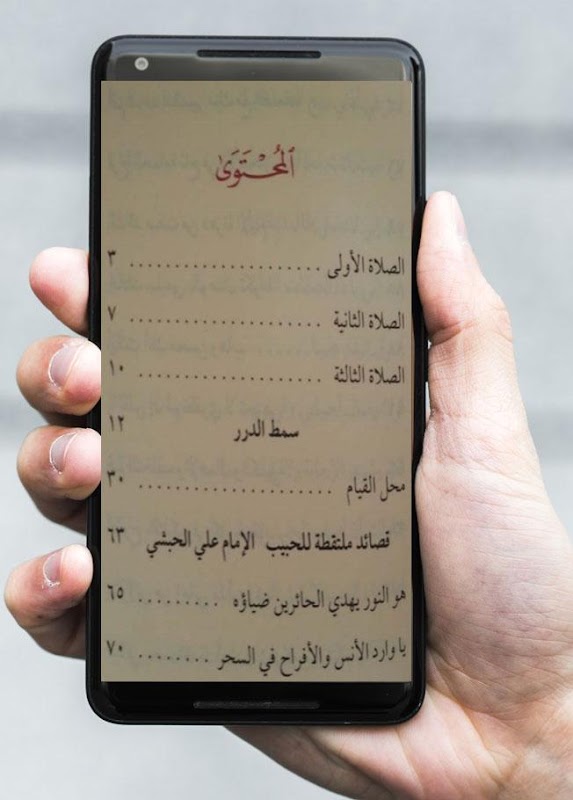 ٱلمُحْتَوَىٰ
الصلاة الأولى .................... ٣
الصلاة الثانية .................... ٧
الصلاة الثالثة .................... ١٠
سمط الدرر ١٢
محل القيام .................... ٣٠
قصائد ملتقطة للحبيب الإمام علي الحبشي ٦٣
هو النور يهدي الحائرين ضياؤه ......... ٦٥
يا وارد الأنس والأفراح في السحر ........ ٧٠